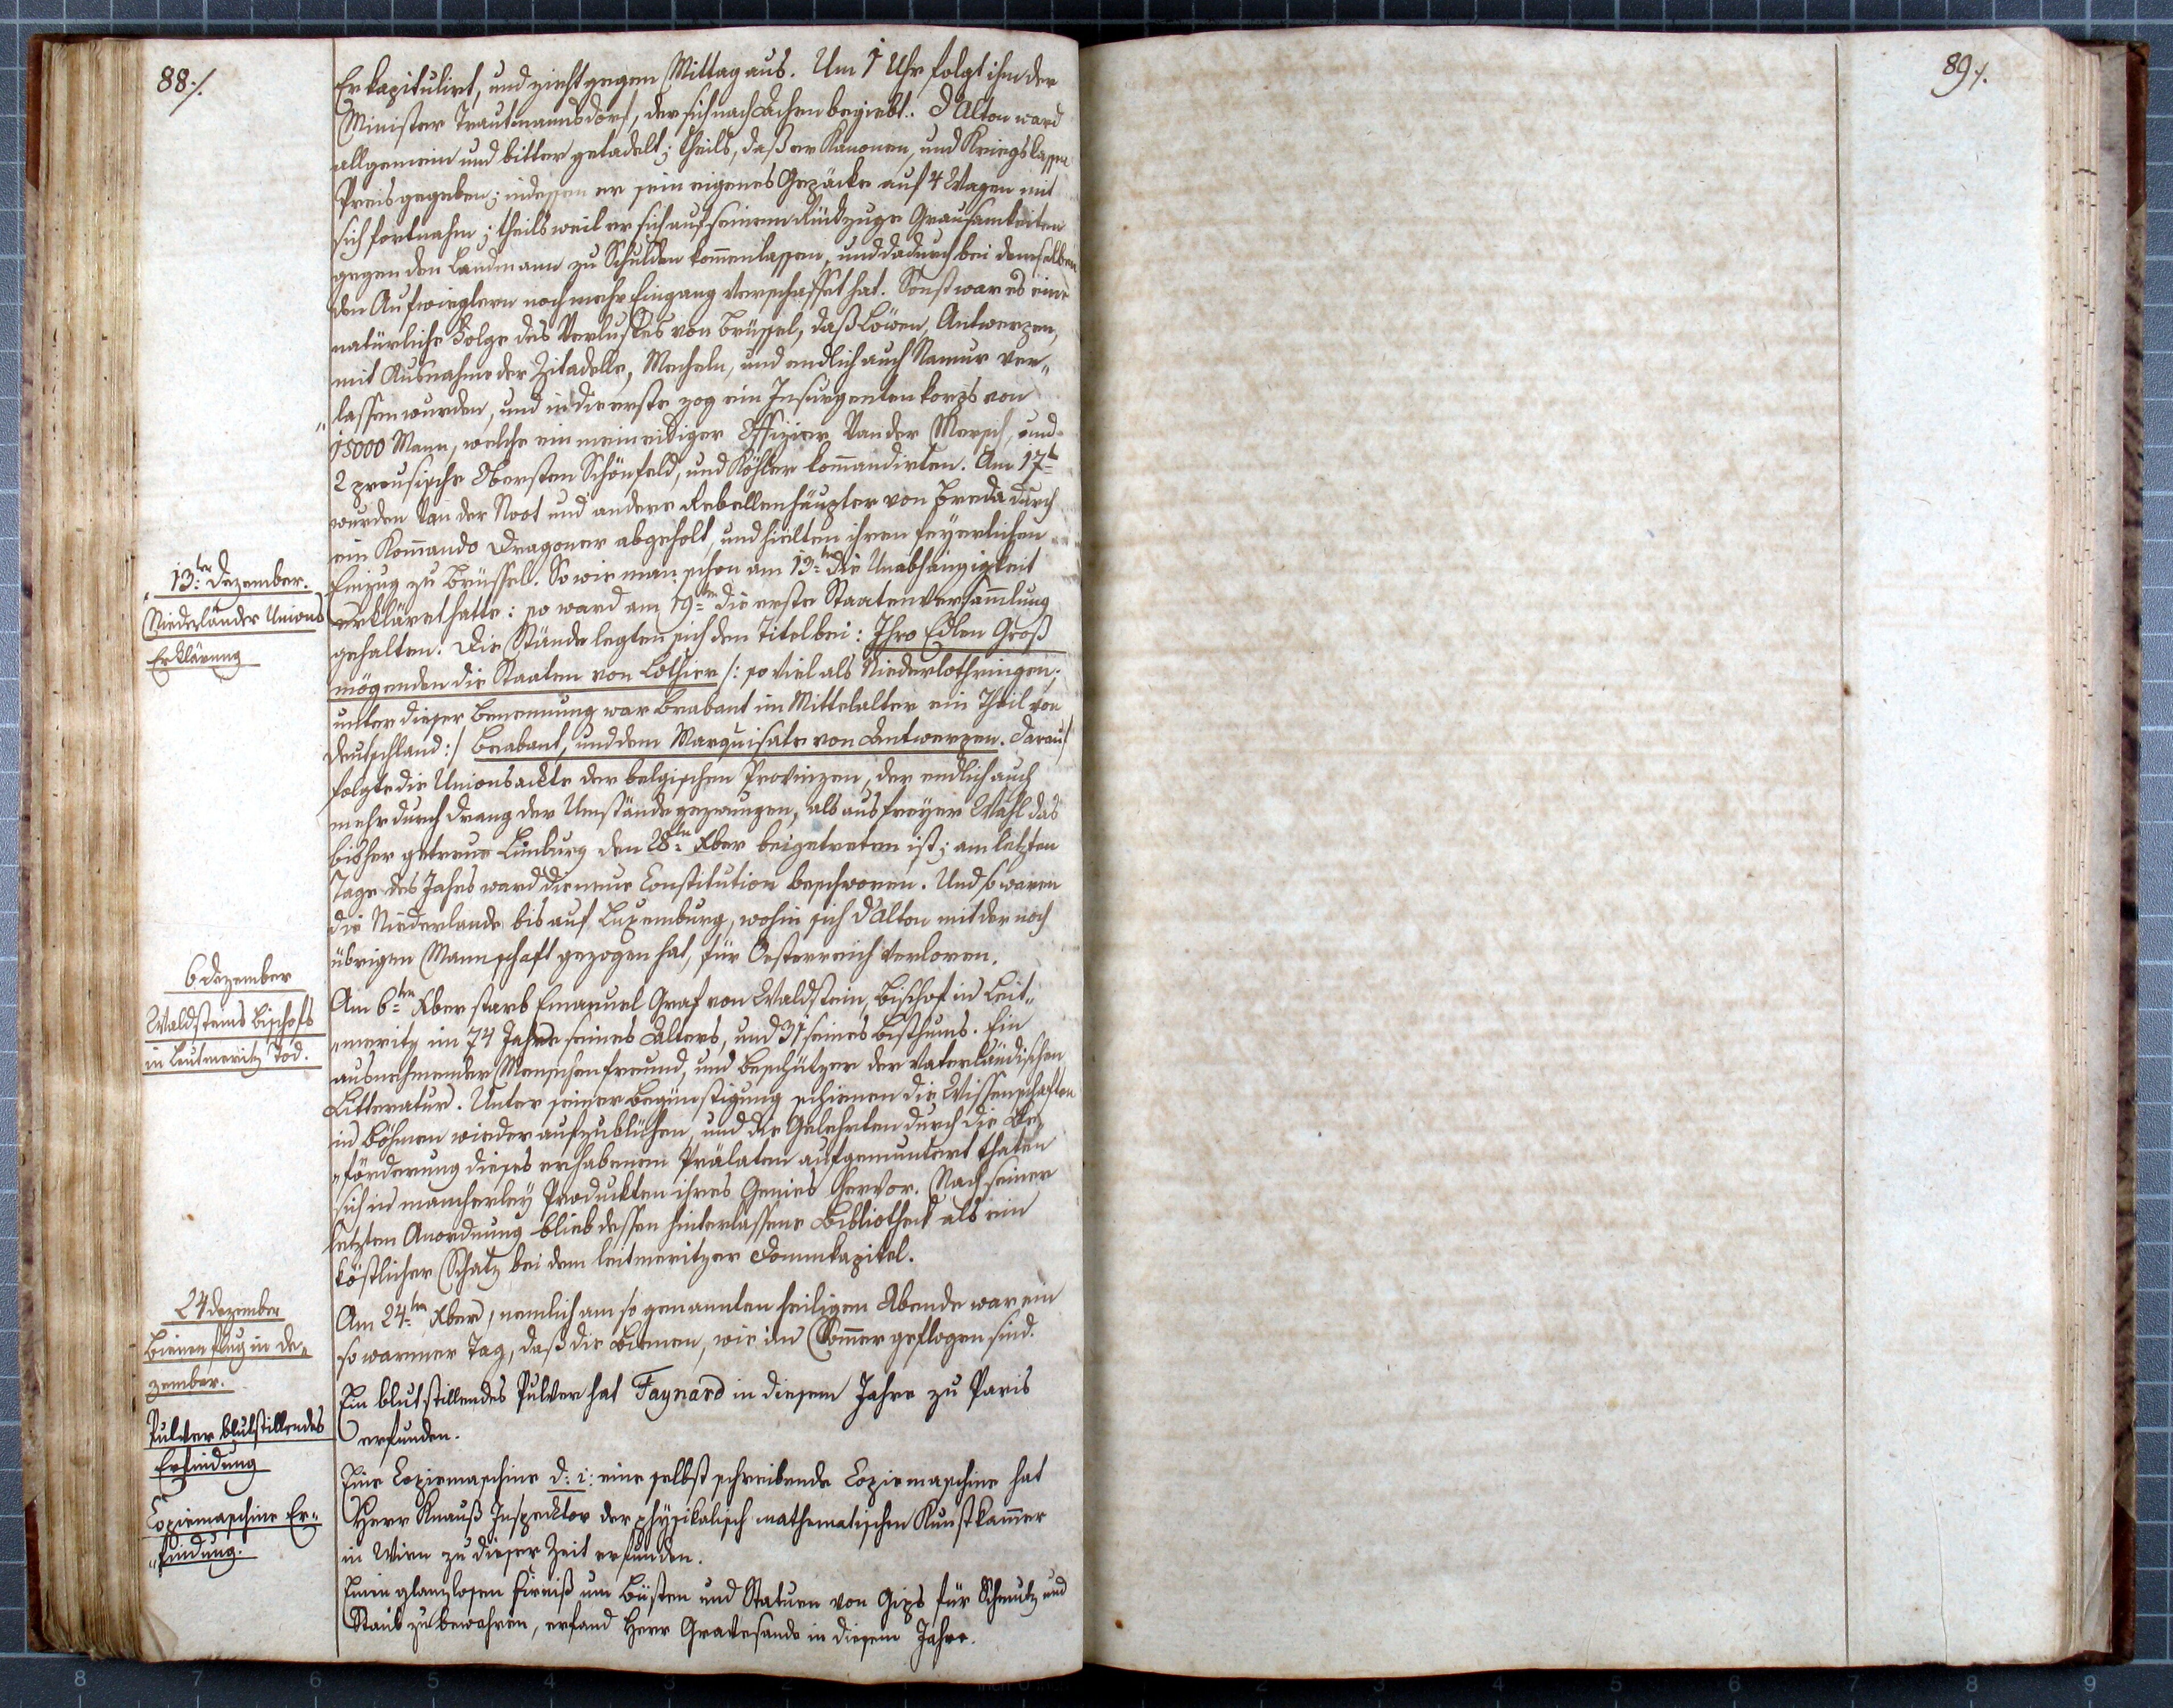 88·/.
Er kapitulirt, und zieht gegen Mittag aus. Um 1 Uhr folgt ihm der
Minister Trautmannsdorf, der sich nach Achen begiebt. D'Alton ward
allgemein und bitter getadelt; theils, daß er Kanonen, und Kriegskassen
Preis gegeben; indessen er sein eigenes Gepäcke auf 4 Wagen mit
sich fortnahm; theils weil er sich auf seinem Rückzuge Grausamkeiten
gegen den Landmann zu Schulden kom̄en lassen, und dadurch bei demselben
den Aufwieglern noch mehr Eingang verschaffet hat. Sonst war es eine
natürliche Folge des Verlustes von Brüssel, daß Löwen, Antwerpen,
mit Ausnahme der Zitadelle, Mecheln, und endlich auch Namur ver„
„lassen wurden, und in die erste zog ein Insurgentenkorps von
15000 Mann, welche ein meineidiger Offizier Van der Mersch, und
2 preusische Obersten Schönfeld, und Köhler kom̄andirten. Am 17t
wurden Van der Noot und andere Rebellenhäupter von Breda durch
ein Kom̄ando Dragoner abgeholt, und hielten ihren feyerlichen
Einzug zu Brüssel. So wie man schon am 13ten die Unabhängigkeit
erkläret hatte: so ward am 19ten die erste Staatenversam̄lung
gehalten. Die Stände legten sich den Titel bei: Ihro Edlen Groß
mögenden die Staaten von Lothier /: so viel als Niederlothringen;
unter dieser Benennung war Brabant im Mittelalter ein Theil von
Deutschland :/ Brabant, und dem Marquisate von Antwerpen. Darauf
folgte die Unionsackte der belgischen Provinzen, der endlich auch
mehr durch Drang der Umstände gezwungen, als aus freyer Wahl das
bisher getreue Limburg den 28ten Xber beigetreten ist; am letzten
Tage des Jahrs ward die neue Constitution beschworen. Und so waren
die Niederlande bis auf Luxemburg, wohin sich D'Alton mit der noch
übrigen Mannschaft gezogen hat, für Oesterreich verloren.
13ter Dezember.
Niederländer Unions
Erklärung
6 Dezember
Waldsteins Bischofs
in Leutmeritz Tod.
Am 6ten Xber starb Emanuel Graf von Waldstein, Bischof in Leit„
„meritz im 74 Jahre seines Alters, und 31 seines Bisthums. Ein
ausnehmender Menschenfreund, und Beschützer der vaterländischen
Litteratur. Unter seiner Begünstigung schienen die Wissenschaften
in Böhmen wieder aufzublühen, und die Gelehrten durch die Be„
„förderung dieses erhabenen Prälaten aufgemuntert thaten
sich in mancherley Produckten ihres Genies hervor. Nach seiner
letzten Anordnung blieb dessen hinterlassene Bibliotheck als ein
köstlicher Schatz bei dem leitmeritzer Dommkapitel.
24 Dezember
Bienenflug in De„
zember.
Am 24ten Xber, nemlich am so genannten heiligen Abende war ein
so warmer Tag, daß die Bienen, wie im Som̄er geflogen sind.
Pulver blutstillendes
Erfindung
Ein blutstillendes Pulver hat Faynard in diesem Jahre zu Paris
erfunden.
Copiemaschine Er„
„findung.
Eine Copiemaschine d: i: eine selbst schreibende Copiemaschine hat
Herr Knauß Inspecktor der physikalisch mathematischen Kunstkam̄er
in Wien zu dieser Zeit erfunden.
Einen glanzlosen Firniß um Büsten und Statuen von Gips für Schmutz und
Staub zu bewahren, erfand Herr Gravesande in diesem Jahre.
89·/.